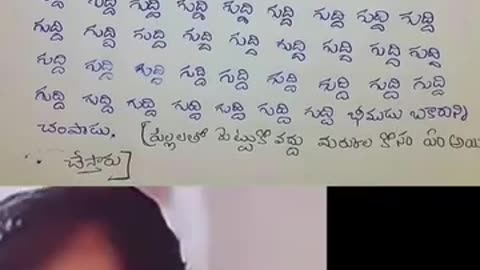 గుద్ది గుద్ది గుద్ది గుద్ది గుద్ది గుద్ది గుద్ది గుద్ది గుద్ది
గుద్ది గుద్ది గుద్ది గుద్ది గుద్ది గుద్ది గుద్ది గుద్ది గుద్ది
గుద్ది గుద్ది గుద్ది గుద్ది గుద్ది గుద్ది గుద్ది గుద్ది గుద్ది
గుద్ది గుద్ది గుద్ది గుద్ది గుద్ది గుద్ది గుద్ది భీముడు బకారున్ని
చంపాడు. [పిల్లలతో పెట్టుకో వద్దు కోసం ఏం
చేస్తారు]